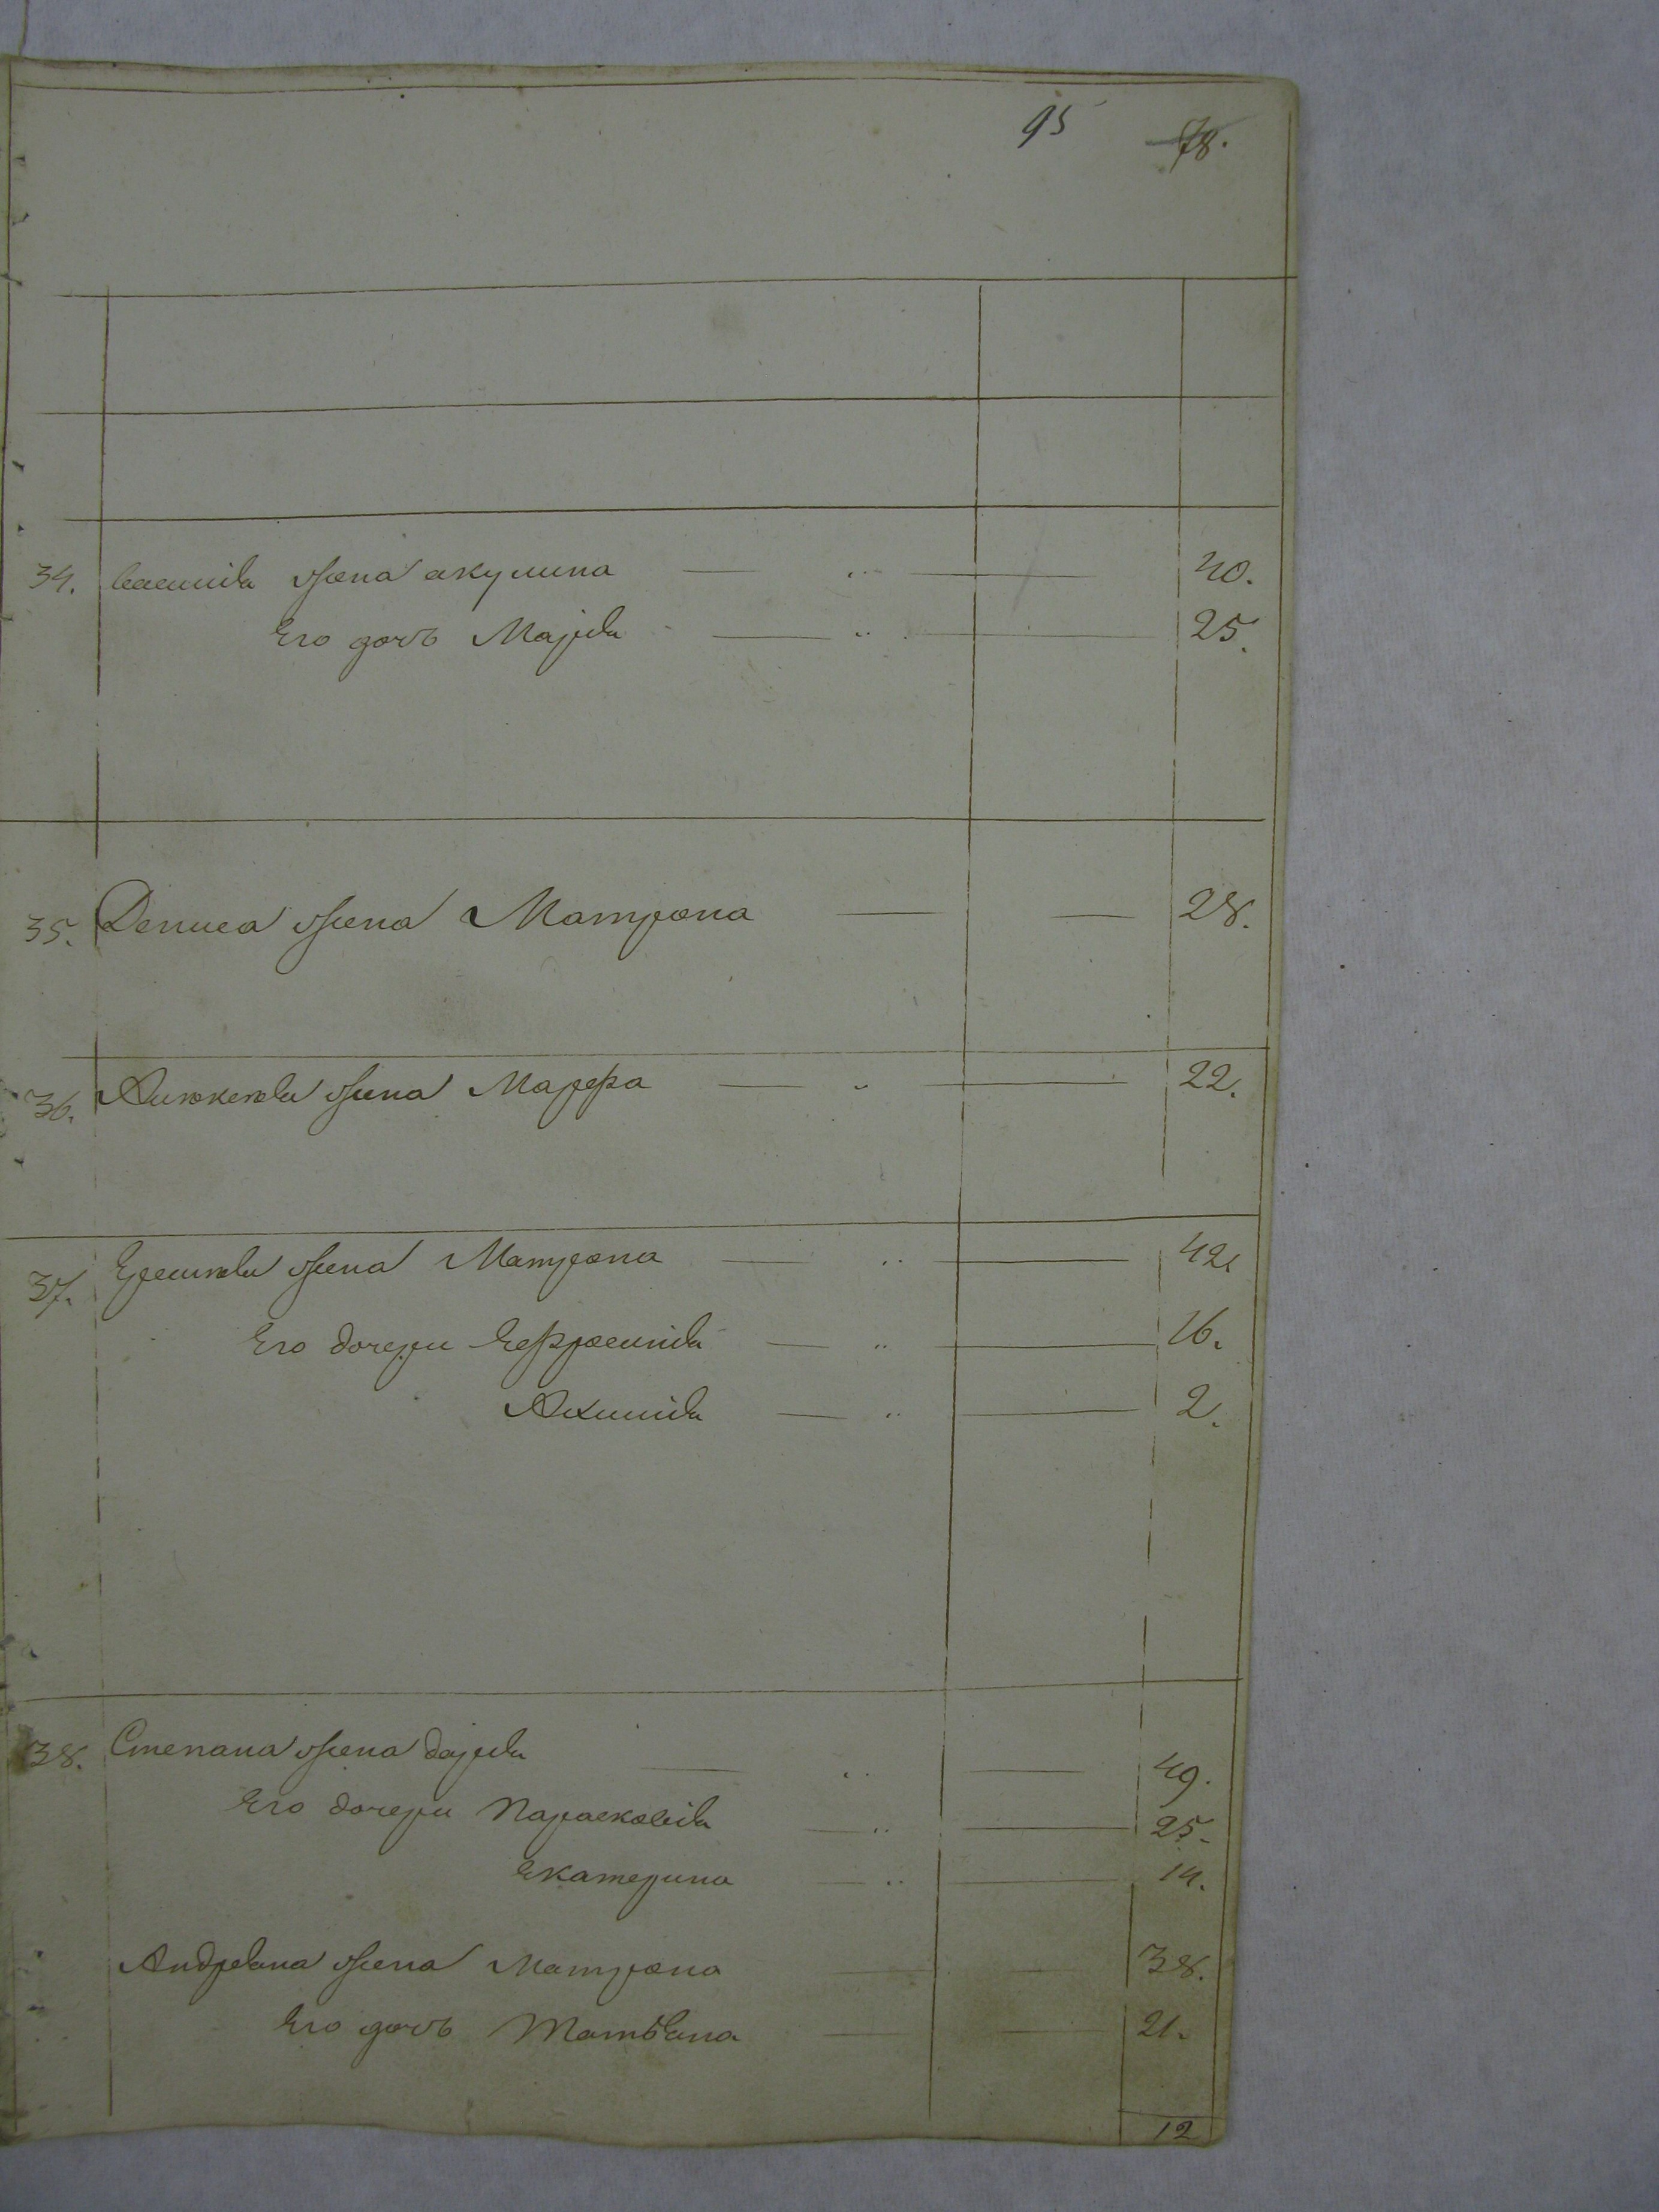 95 78.
34. Василія жена акулина 40.
Его дочь Марія 25.
35. Дениса жена Матрона 28.
36. жена Марфа 22.
37. жена Матрона 42.
Его дочери Евфросинія 16.
Аксинія 2.
38. Степана жена дарія 49.
Его дочери Параскевія 25.
Екатерина 14.
Андреяна жена Матрона 38.
Его дочь Татьяна 21.
12